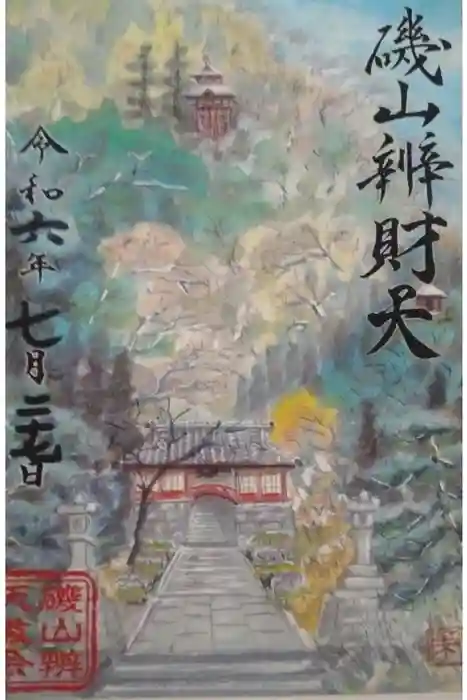 磯山辨財天
令和六年七月二十七日
磯山辨